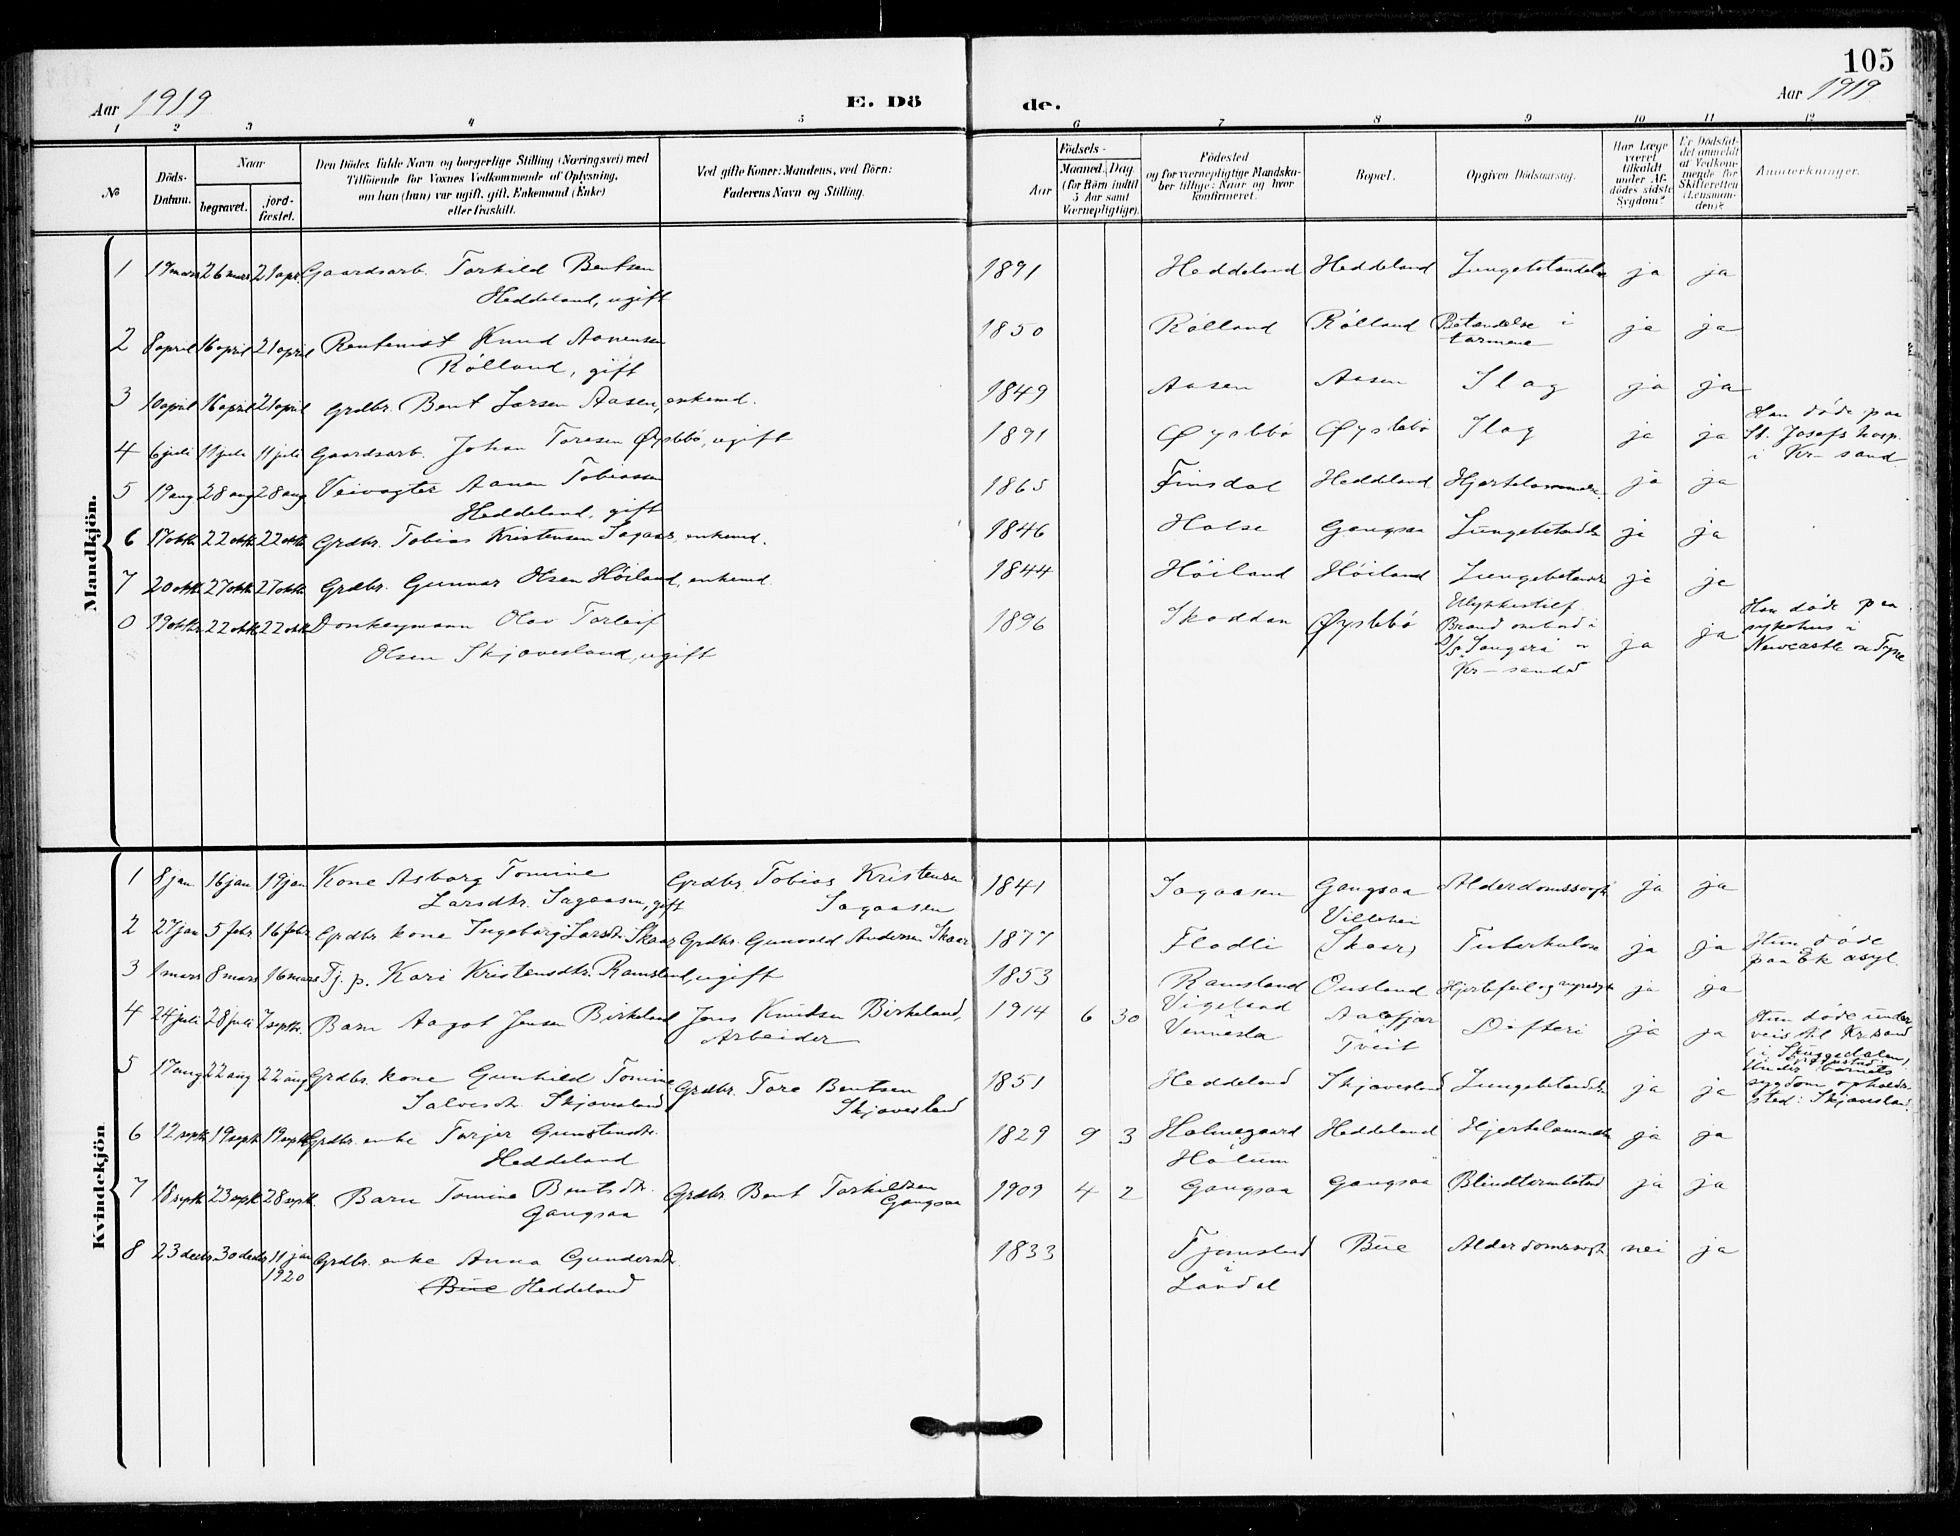 105
Aar 1919
E. Dö
de.
Aar 1919
1 2 3 4 5 6 7 8 9 10 11 12
№
Döds-Datum.
Naar
begravet.
jord-fæstet.
Den Dödes fulde Navn og borgerlige Stilling (Næringsvei) med
Tilföiende for Voxnes Vedkommende af Oplysning,
om han (hun) var ugift, gift, Enkemand (Enke)
eller fraskilt.
Ved gifte Koner: Mandens, ved Börn:
Faderens Navn og Stilling.
Födsels-
Aar
Maaned. Dag
(for Börn indtil
5 Aar samt
Værnepligtige).
Födested
og for værnepligtige Mandska-
ber tillige: Naar og hvor
konfirmeret.
Bopæl.
Opgiven Dödsaarsag.
Har Læge
været
tilkaldt
under Af-
dödes sidste
Sygdom?
Er Dödsfal-
det anmeldt
af Vedkom-
mende for
Skifteretten
(Lensman-
den)?
Anmærkninger.
Mandkjön.
1 19 mars 26 mars 21 apr. Gaardsarb. Torkild Bentsen 1891 Heddeland Heddeland Lungebetændelse ja ja
Heddeland, ugift
2 8 april 16 april 21 april Rentenist Knud Aanensen 1850 Rölland Rölland Betændelse i ja ja
Rölland, gift tarmene
3 10 april 16 april 21 april Grdbr. Bent Larsen Aasen, enkemd. 1849 Aasen Aasen Slag ja ja
4 6 juli 11 juli 11 juli Gaardsarb. Johan Toresen Øyslebö, ugift 1891 Øyslebö Øyslebö Slag ja ja Han døde paa
St. Josefs hosp.
i Kr-sand.
5 19 aug 28 aug 28 aug Veivogter Aanen Tobiassen 1865 Finsdal Heddeland ja ja
Heddeland, gift
6 17 oktbr 22 oktbr 22 oktbr Grdbr. Tobias Kristensen Sagaas, enkemd. 1846 Holse Gangsaa ja ja
7 20 oktbr 27 oktbr 27 oktbr Grdbr. Gunnar Olsen Höiland, enkemd. 1844 Höiland Höiland ja ja
0 19 oktbr 22 oktbr 22 oktbr Donkeymann Olav Torleif 1896 Skoddan Øyslebö Ulykkestilf. ja ja Han døde paa
Olsen Skjævesland, ugift Brand ombord i sykehus i
Kr-sand Newcastle on Tyne
Kvindekjön
1 8 jan 16 jan 19 jan Kone Asborg Tomine Grdbr. Tobias Kristensen 1841 Sagaasen Gangsaa Alderdomssvagh. ja ja
Larsdtr. Sagaasen, gift Sagaasen
2 27 jan 5 febr 16 febr Grdbr. kone Ingeborg Larsdtr. Skaar Grdbr. Gunvald Andersen Skaar 1877 Flodli (Skaar) Tuberkulose ja ja Hun døde
paa Ek asyl.
3 1 mars 8 mars 16 mars Tj. p. Kari Kristensdtr. Ramsland, ugift 1853 Ramsland Ousland Hjertefeil og nyresyk ja ja
4 24 juli 28 juli 7 septbr. Barn Aagot Jensen Birkeland Jens Knudsen Birkeland, 1914 6 30 Vigeland Difteri ja ja Hun døde under
Arbeider Vennesla Tveit veis til Kr.sand
5 17 aug 22 aug 22 aug Grdbr. kone Gunhild Tomine Grdbr. Tore Bentsen 1851 Heddeland Skjævesland Lungebetændelse ja ja
Salvesdtr. Skjævesland Skjævesland
sygdom opholds-
sted: Skjævesland.
6 12 septbr 19 septbr 19 septbr Grdbr. enke Torjer Gunstensdtr. 1829 9 3 Holmegaard Heddeland ja ja
Heddeland Holum
7 18 septbr 23 septbr 28 septbr. Barn Tomine Bentsdtr. Grdbr Bent Torkildsen 1909 4 2 Gangsaa Gangsaa Blindtarmbetænd ja ja
Gangsaa Gangsaa
8 23 decbr. 30 decbr. 11 jan 1920 Grdbr. enke Anna Gundersdtr. 1833 Tjomsland Bue Alderdomssvagh nei ja
(Bue Heddeland i Laudal